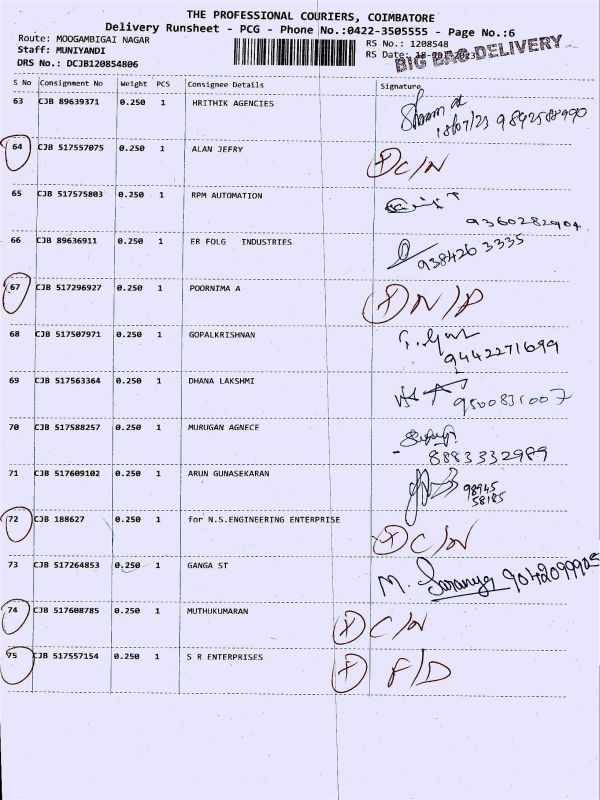 THE PROFESSIONAL COURIERS, COIMBATORE
Delivery Runsheet - PCG - Phone No.:0422-3505555 - Page No.:6
Route: MOOGAMBIGAI NAGAR
RS No.: 1208548
Staff: MUNIYANDI
RS Date:
BIG BAG DELIVERY
DRS No.: DCJB120854806
S No Consignment No Weight PCS Consignee Details Signature
63 CJB 89639371 0.250 1 HRITHIK AGENCIES
18/07/23 9842588990
64 CJB 517557075 0.250 1 ALAN JEFRY X C/N
65 CJB 517575803 0.250 1 RPM AUTOMATION
9360282904
66 CJB 89636911 0.250 1 ER FOLG INDUSTRIES 9384263335
67 CJB 517296927 0.250 1 POORNIMA A X N/P
68 CJB 517507971 0.250 1 GOPALKRISHNAN
9442271699
69 CJB 517563364 0.250 1 DHANA LAKSHMI 9500831007
70 CJB 517588257 0.250 1 MURUGAN AGNECE
8883332989
71 CJB 517609102 0.250 1 ARUN GUNASEKARAN
98945
58185
72 CJB 188627 0.250 1 for N.S.ENGINEERING ENTERPRISE X C/N
73 CJB 517264853 0.250 1 GANGA ST M. Saranya
74 CJB 517608785 0.250 1 MUTHUKUMARAN X C/N
75 CJB 517557154 0.250 1 S R ENTERPRISES X F/D